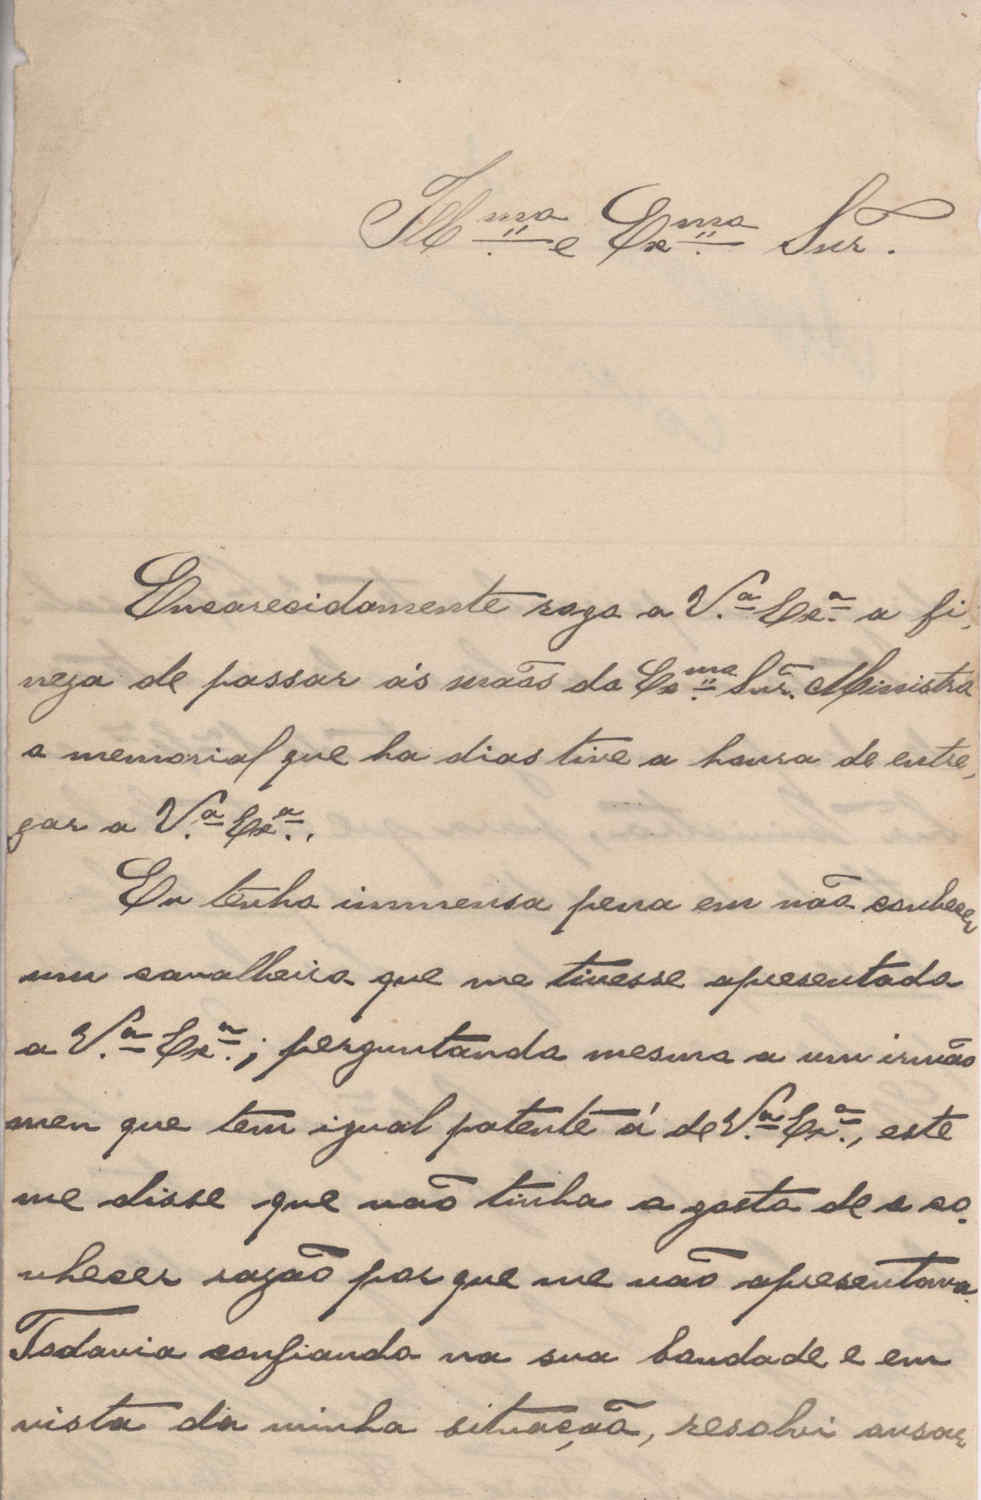 Ill.mo e Ex.mo Snr.
Encarecidamente rogo a V.ª Ex.ª a fi-
neza de passar ás mãos do Ex.mo Snr. Ministro
o memorial que ha dias tive a honra de entre-
gar a V.ª Ex.ª.
Eu tenho immensa pena em não conhecer
um cavalheiro que me tivesse apresentado
a V.ª Ex.ª; perguntando mesmo a um irmão
meu que tem igual patente á de V.ª Ex.ª, este
me disse que não tinha o gosto de o co-
nhecer razão por que me não apresentava.
Todavia confiando na sua bondade e em
vista da minha situação, resolvi ousar